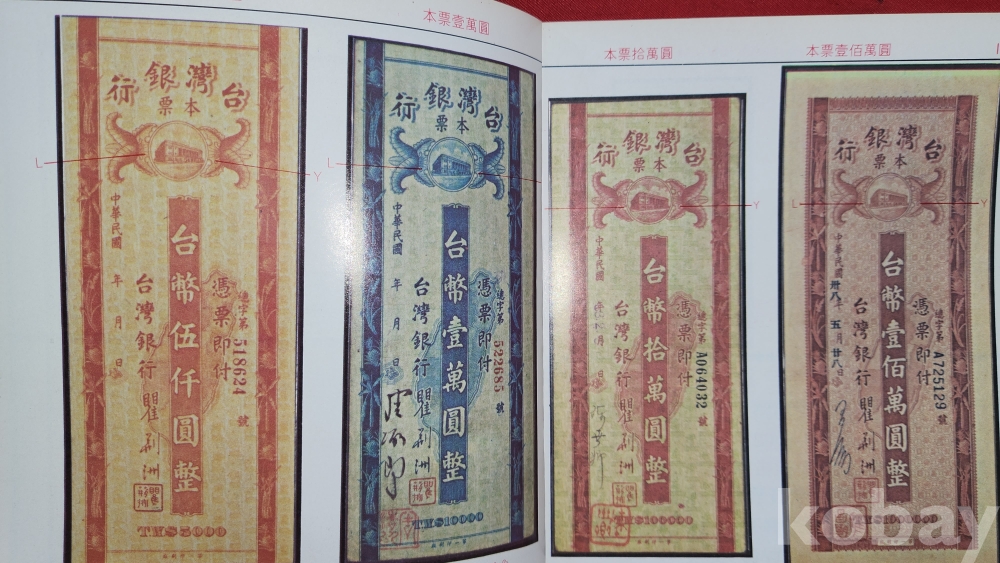 本票壹萬圓
本票拾萬圓
本票壹佰萬圓
台灣銀行
本票
L
Y
中華民國 年 月 日
台幣伍仟圓整
憑票即付
連字第518624號
台灣銀行 瞿荊洲
TMS5000
台灣銀行
本票
L
中華民國 年 月 日
台幣壹萬圓整
憑票即付
連字第522685號
台灣銀行 瞿荊洲
TMS10000
台灣銀行
本票
Y
中華民國
台幣拾萬圓整
憑票即付
連字第A064032號
台灣銀行 瞿荊洲
台灣銀行
本票
L
Y
中華民國卅八年五月廿八日
台幣壹佰萬圓整
憑票即付
連字第A725129號
台灣銀行 瞿荊洲
TMS1000000
kobay